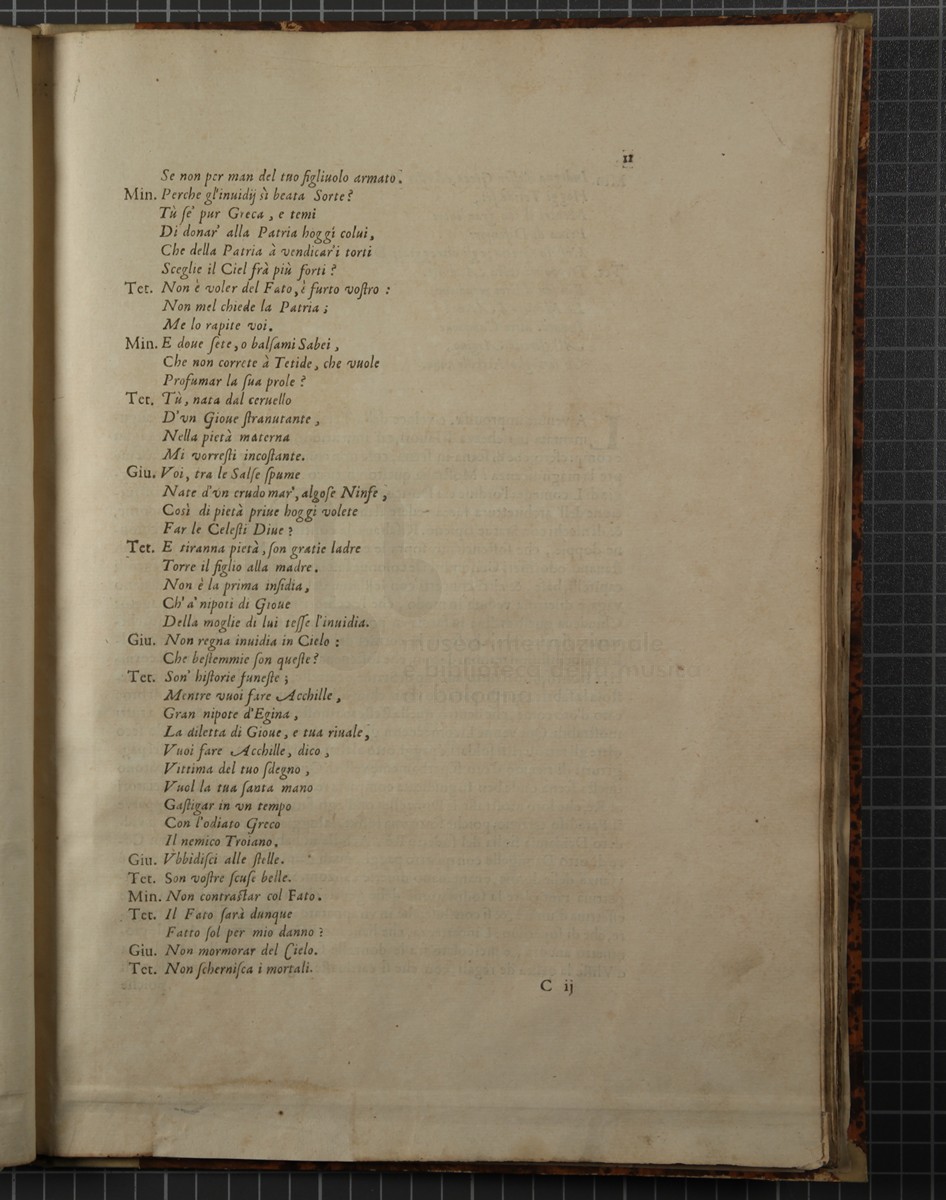 11
Se non per man del tuo figliuolo armato.
Min. Perche gl'inuidij sì beata Sorte?
Tù ſe' pur Greca, e temi
Di donar' alla Patria hoggi colui,
Che della Patria à vendicar'i torti
Sceglie il Ciel frà più forti?
Tet. Non è voler del Fato, è furto voſtro:
Non mel chiede la Patria;
Me lo rapite voi.
Min. E doue ſete, o balſami Sabei,
Che non correte à Tetide, che vuole
Profumar la ſua prole?
Tet. Tù, nata dal ceruello
D'vn Gioue ſtranutante,
Nella pietà materna
Mi vorreſti incoſtante.
Giu. Voi, tra le Salſe ſpume
Nate d'vn crudo mar', algoſe Ninfe,
Così di pietà priue hoggi volete
Far le Celeſti Diue?
Tet. E tiranna pietà, ſon gratie ladre
Torre il figlio alla madre.
Non è la prima inſidia,
Ch'a' nipoti di Gioue
Della moglie di lui teſſe l'inuidia.
Giu. Non regna inuidia in Cielo:
Che beſtemmie ſon queſte?
Tet. Son' hiſtorie funeſte;
Mentre vuoi fare Acchille,
Gran nipote d'Egina,
La diletta di Gioue, e tua riuale,
Vuoi fare Acchille, dico,
Vittima del tuo ſdegno,
Vuol la tua ſanta mano
Gaſtigar in vn tempo
Con l'odiato Greco
Il nemico Troiano.
Giu. Vbbidiſci alle ſtelle.
Tet. Son voſtre ſcuſe belle.
Min. Non contraſtar col Fato.
Tet. Il Fato ſarà dunque
Fatto ſol per mio danno?
Giu. Non mormorar del Cielo.
Tet. Non ſcherniſca i mortali.
C ij
museo internazionale
e biblioteca della musica
di bologna